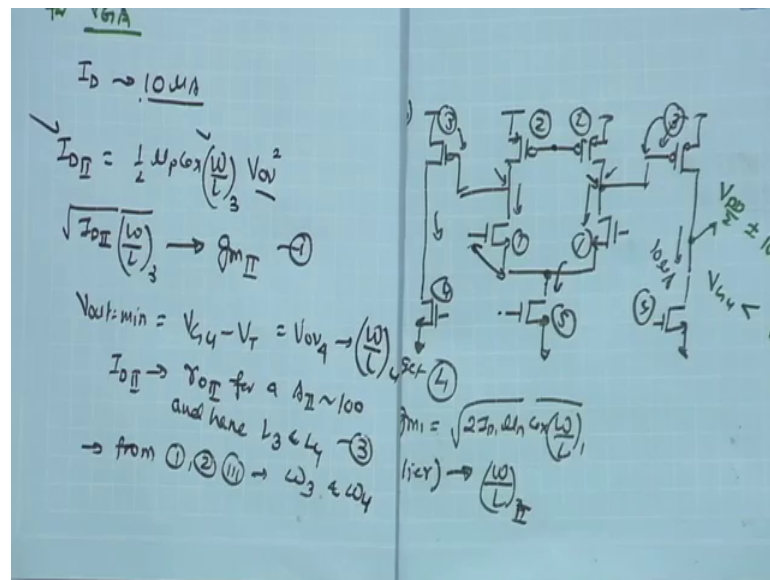 for VGA
I_D → 10 μA
I_DII = 1/2 μ_p Cox (W/L)_3 V_ov^2
√(I_DII (W/L)_3) → gm_II — ①
Vout min = V_G4 - V_T = V_ov4 → (W/L)_4
I_DII → r_oII for a A_II ~ 100
and hence L_3 & L_4 — ③
→ from ①, ② ③ → W_3 & W_4
③ ② ② ③
① ①
④ ⑤
V_DD/2 ± 10
10μA
V_G4 <
④
gm_1 = √(2 I_D1 μ_n Cox (W/L)_1)
→ (W/L)_II